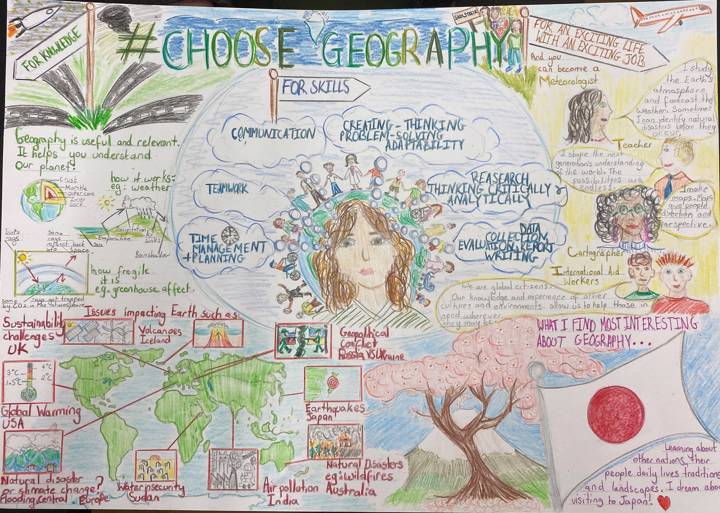 FOR KNOWLEDGE
#CHOOSE GEOGRAPHY
FOR AN EXCITING LIFE
WITH AN EXCITING JOB
FOR SKILLS
COMMUNICATION
CREATING-THINKING
PROBLEM-SOLVING
ADAPTABILITY
TEAMWORK
REASEARCH
THINKING CRITICALLY &
ANALYTICALLY
TIME
MANAGEMENT
+PLANNING
DATA
COLLECTION,
EVALUATION, REPORT
WRITING
Geography is useful and relevant.
It helps you understand
Our planet:
Crust
Mantle
how it works:
eg: weather
how fragile
it is
e.g. greenhouse affect.
And you
can become a
Meteorologist
I study
the Earth's
atmosphere
and forecast the
weather. Sometimes
I can identify natural
disasters before they
occur!
Teacher
I shape the next
generations understanding
of the world. The
possibilities are
endless.
I make
maps. Maps
give people
direction and
perspective.
Cartographer
International Aid
Workers
We are global citizens.
Our knowledge and experience of other
cultures and environments allow us to help those in
need wherever
they may be.
Issues impacting Earth such as:
Sustainability
challenges
UK
Volcanoes
Iceland
Geopolitical
Conflict
Russia VS Ukraine
3°C
1.5°C
4°C
2°C
Global Warming
USA
Earthquakes
Japan
Natural disaster
or climate change?
Flooding, Central Europe
Water insecurity
Sudan
Air pollution
India
Natural Disasters
eg: wildfires
Australia
WHAT I FIND MOST INTERESTING
ABOUT GEOGRAPHY...
Learning about
other nations, their
people daily lives traditions
and landscapes. I dream about
visiting to Japan!